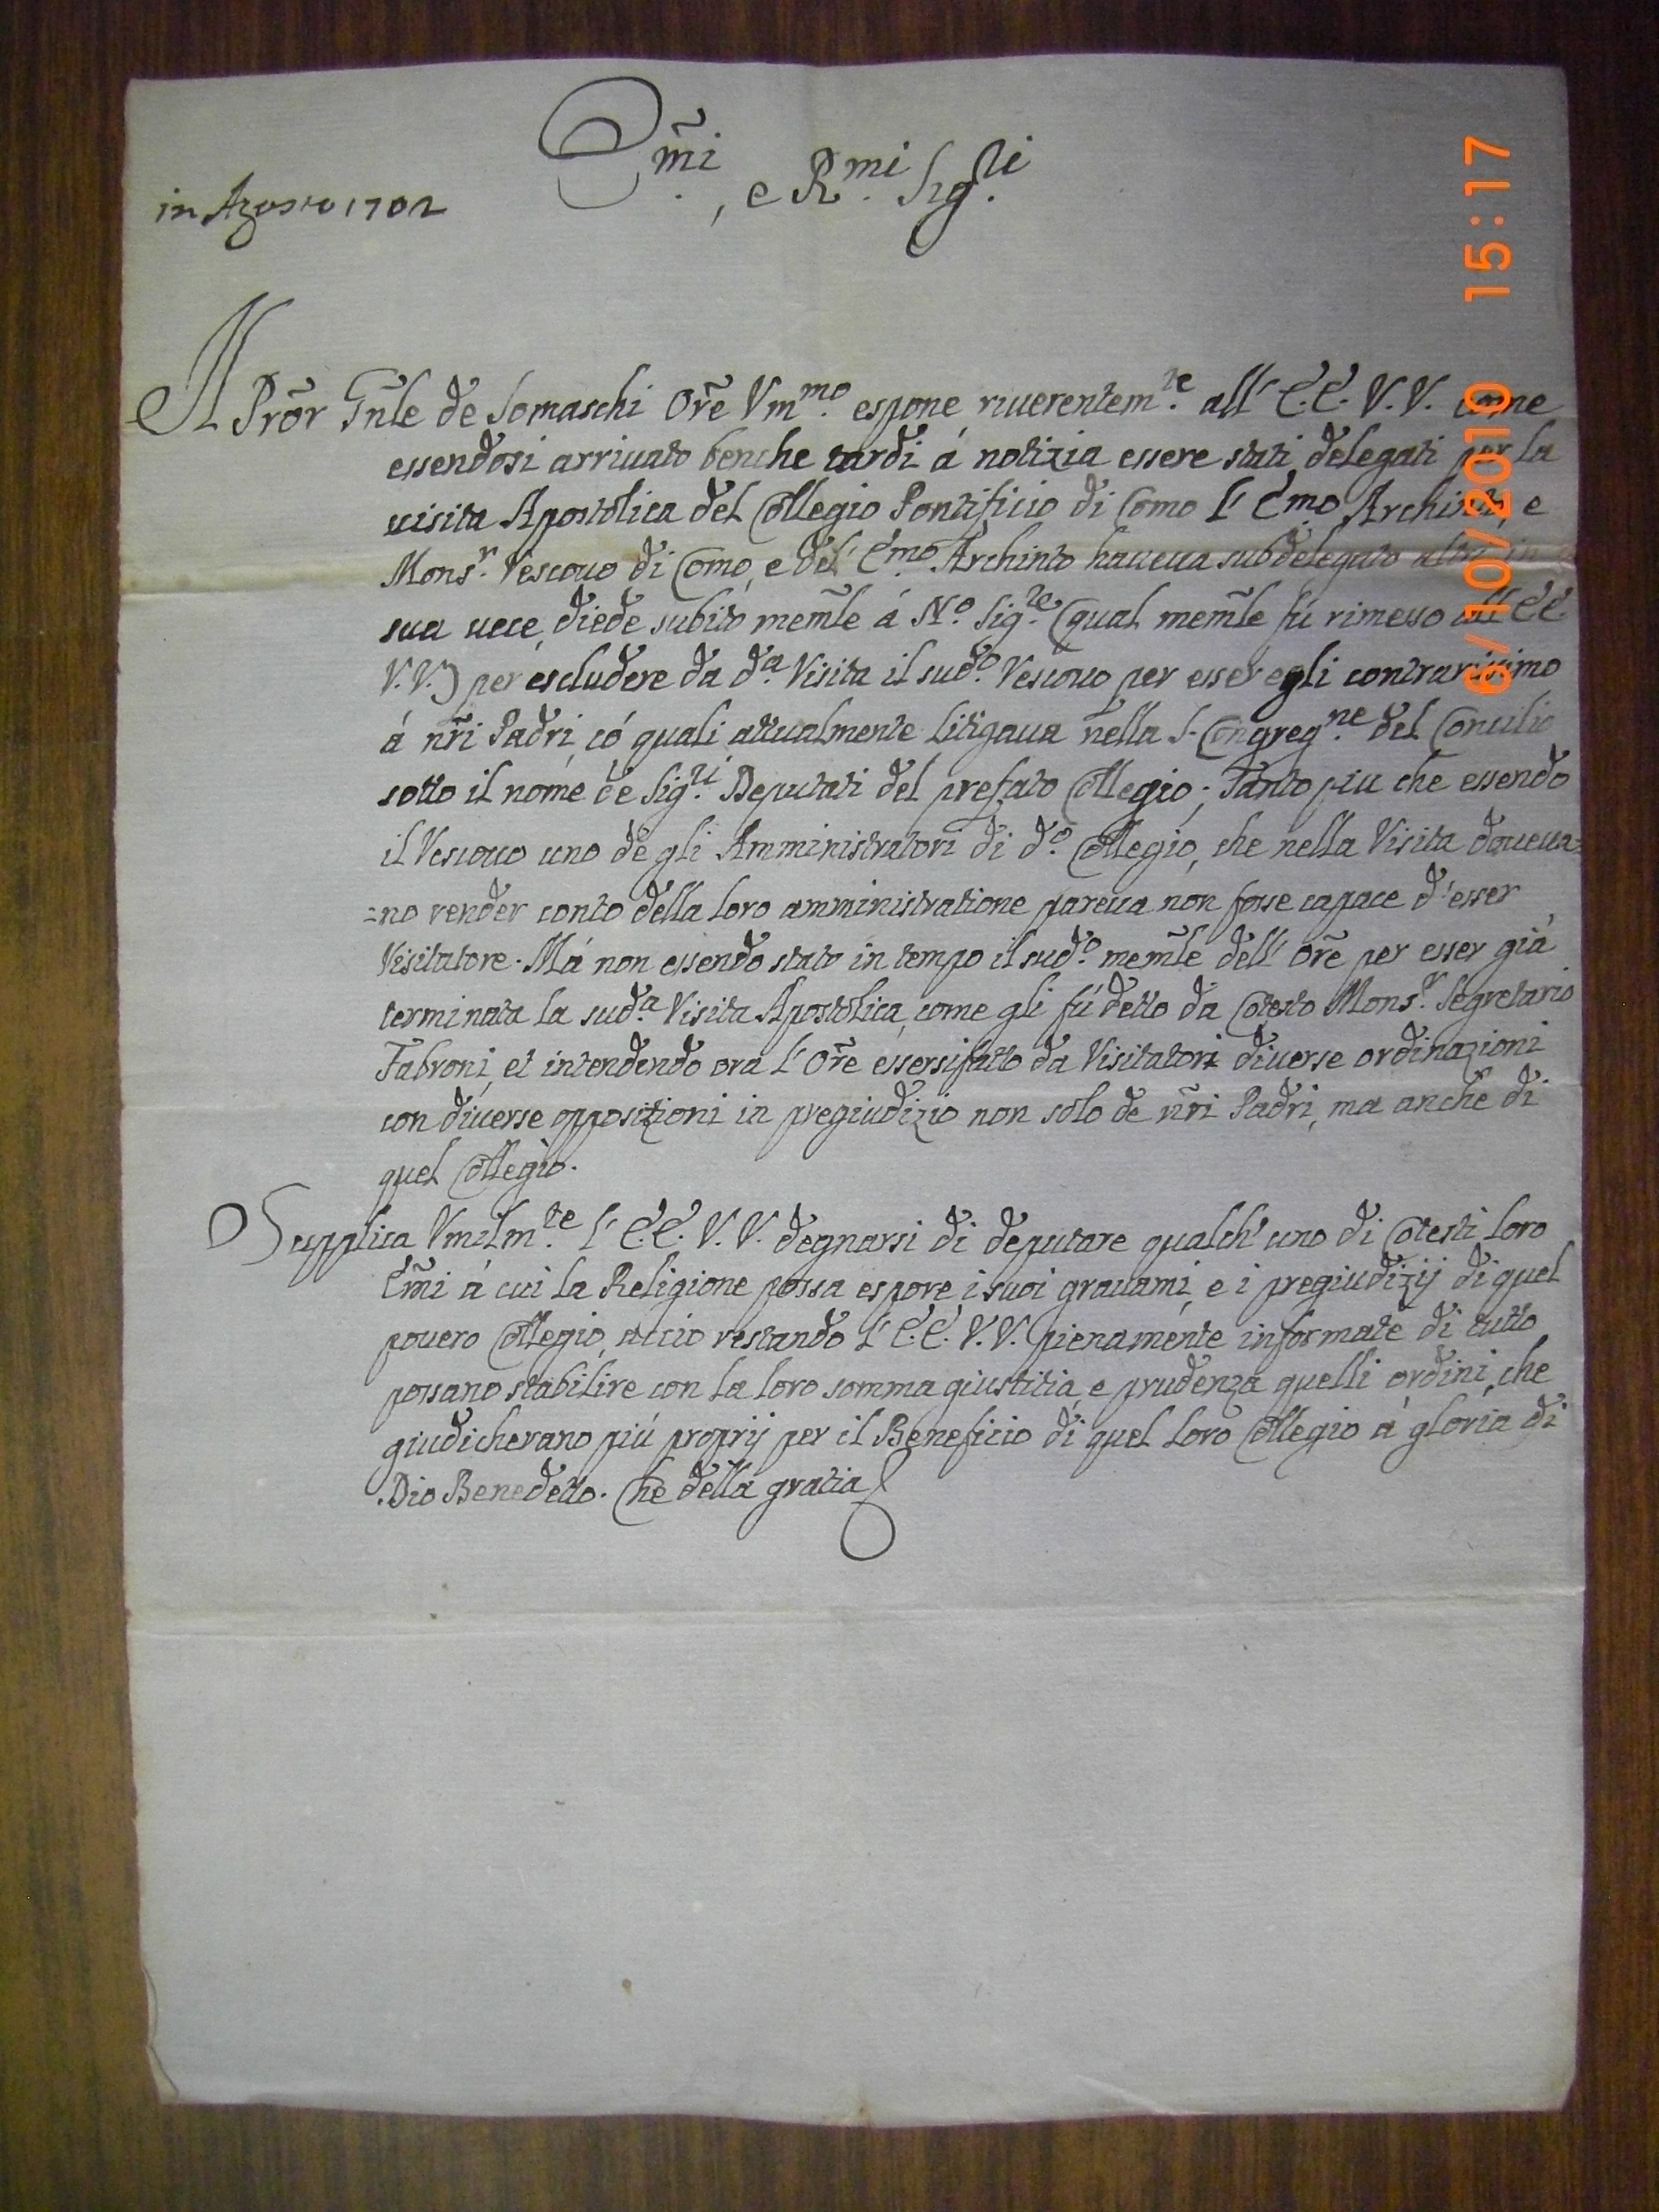 Em̃i, e R.mi Sig.ri
in Agosto 1702
Il Prõr Gñle de Somaschi Orẽ Vm.mo espone riuerentem.te all' E.E. V.V. come
essendosi arriuato benche tardi á notizia essere stati delegati per la
uisita Apostolica del Collegio Pontificio di Como l' E.mo Archinto, e
Mons.r Vescouo di Como, e del' E.mo Archinto haueua subdelegato altri in
sua uece, diede subito mem̃le á N.o Sig.re (qual mem̃le fú rimesso all' E.E.
V.V.) per escludere da d.a Visita il sud.o Vescouo per esser egli contrarissimo
á nr̃i Padri, có quali attualmente litigaua nella S. Congreg.ne del Concilio
sotto il nome de Sig.ri Deputati del prefato Collegio; Tanto piu che essendo
il Vescouo uno de gli Amministratori di d.o Collegio, che nella Visita doueua=
=no render conto della loro amministratione pareua non fosse capace d'esser
Visitatore. Má non essendo stato in tempo il sud.o mem̃le dell' Orẽ per esser giá
terminata la sud.a Visita Apostolica, come gli fú detto da Cotesto Mons.r Segretario
Fabroni, et intendendo ora l' Orẽ essersi fatto da Visitatori diuerse ordinazioni
con diuerse oppositioni in pregiudizio non solo de nr̃i Padri, ma anche di
quel Collegio.
Supplica Vmilm.te l' E.E. V.V. degnarsi di deputare qualch' uno di Cotesti loro
Em̃i á cui la Religione possa espore i suoi grauami, e i pregiudizij di quel
pouero Collegio, accio restando l' E.E. V.V. pienamente informate di tutto
possano stabilire con la loro somma giustitia, e prudenza quelli ordini, che
giudicherano piú proprij per il Beneficio di quel loro Collegio á gloria di
Dio Benedetto. Che della gratia
6/10/2010 15:17